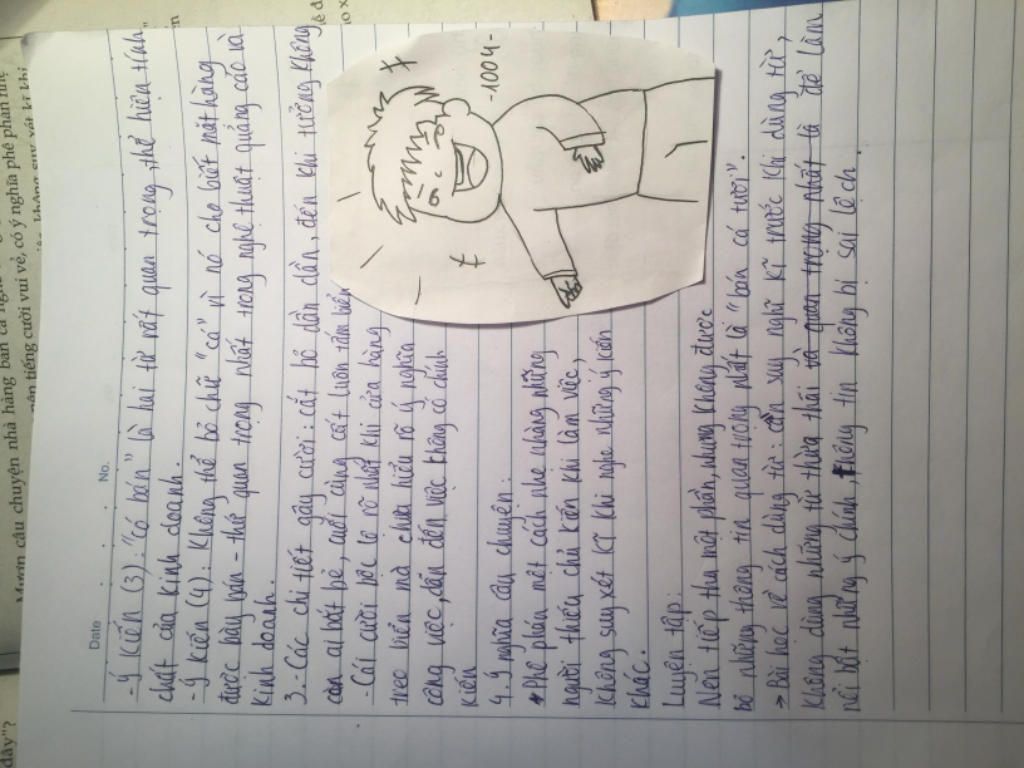 dây"?
Mượn câu chuyện nhà hàng bán cá
nên tiếng cười vui vẻ, có ý nghĩa phê phán nhẹ
không suy xét kĩ khi
Date No.
- Ý kiến (3): "có bán" là hai từ rất quan trọng, thể hiện tính
chất của kinh doanh.
- Ý kiến (4): Không thể bỏ chữ "cá" vì nó cho biết mặt hàng
được bày bán - thứ quan trọng nhất trong nghệ thuật quảng cáo và
kinh doanh.
3. Các chi tiết gây cười: cắt bỏ dần dần, đến khi tưởng không
còn ai bắt bẻ, cuối cùng cất luôn tấm biển
- Cái cười bộc lộ rõ nhất khi cửa hàng
treo biển mà chưa hiểu rõ ý nghĩa
công việc, dẫn đến việc không có chính
kiến
4. Ý nghĩa câu chuyện:
* Phê phán một cách nhẹ nhàng những
người thiếu chủ kiến khi làm việc,
không suy xét kĩ khi nghe những ý kiến
khác.
Luyện tập:
Nên tiếp thu một phần, nhưng không được
bỏ những thông tin quan trọng nhất là "bán cá tươi".
→ Bài học về cách dùng từ: cần suy nghĩ kĩ trước khi dùng từ,
không dùng những từ thừa thãi và quan trọng nhất là để làm
nổi bật những ý chính, thông tin không bị sai lệch.
- 1004 -